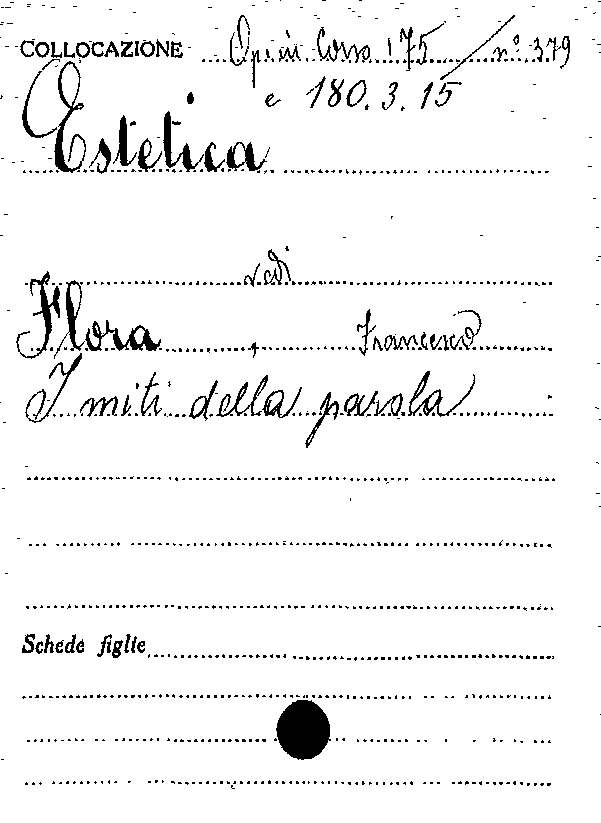 COLLOCAZIONE Op. in Corso 175/n° 379
e 180.3.15
Estetica
vedi
Flora, Francesco
I miti della parola
Schede figlie